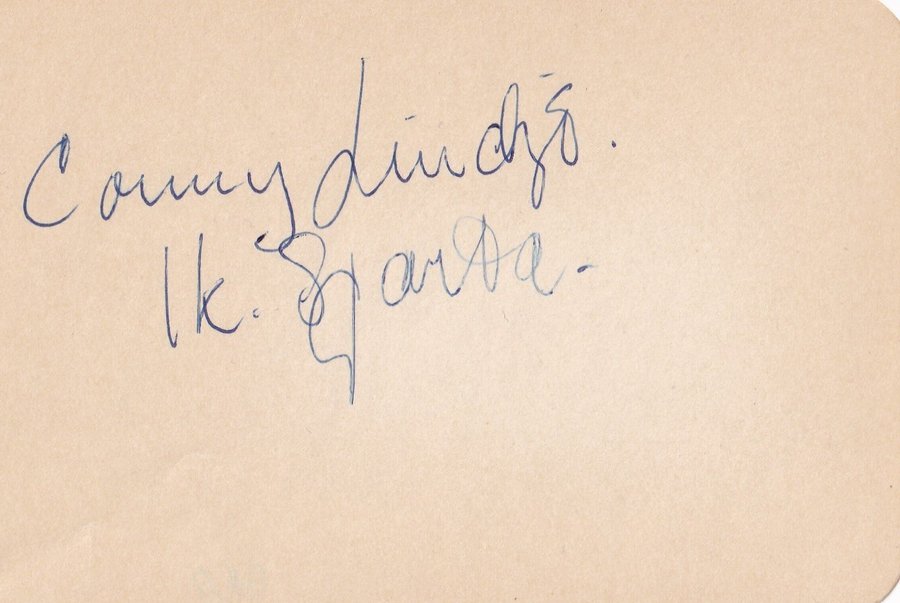 Conny Lindsjö.
Ik. Sparta.